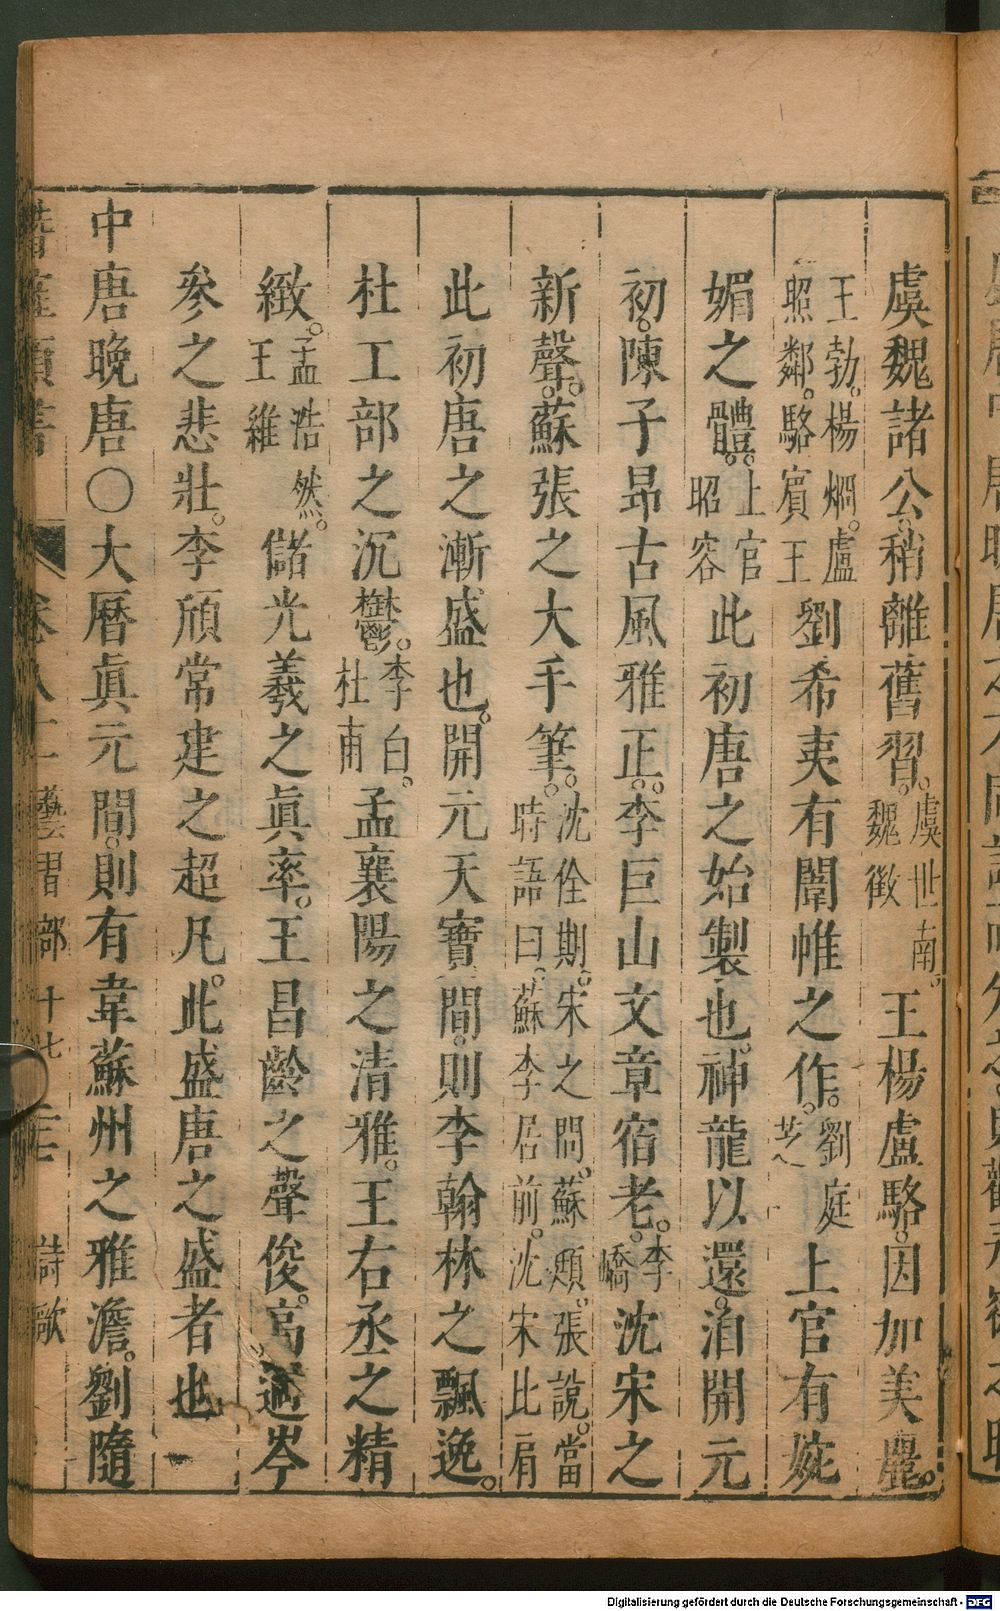 虞魏諸公。稍離舊習。虞世南。魏徵王楊盧駱。因加美麗。
王勃。楊烱。盧照鄰。駱賓王劉希夷有閨帷之作。劉庭芝上官有婉
媚之體。上官昭容此初唐之始製也。神龍以還。洎開元
初。陳子昂古風雅正。李巨山文章宿老。李嶠沈宋之
新聲。蘇張之大手筆。沈佺期。宋之問。蘇頲。張說。當時語曰。蘇李居前。沈宋比肩
此初唐之漸盛也。開元天寶間。則李翰林之飄逸。
杜工部之沉鬱。李白。杜甫孟襄陽之清雅。王右丞之精
緻。孟浩然。王維儲光羲之眞率。王昌齡之聲俊。高適岑
參之悲壯。李頎常建之超凡。此盛唐之盛者也
中唐晚唐〇大曆眞元間。則有韋蘇州之雅澹。劉隨
卷八十 藝習部十七 詩歌
Digitalisierung gefördert durch die Deutsche Forschungsgemeinschaft - DFG